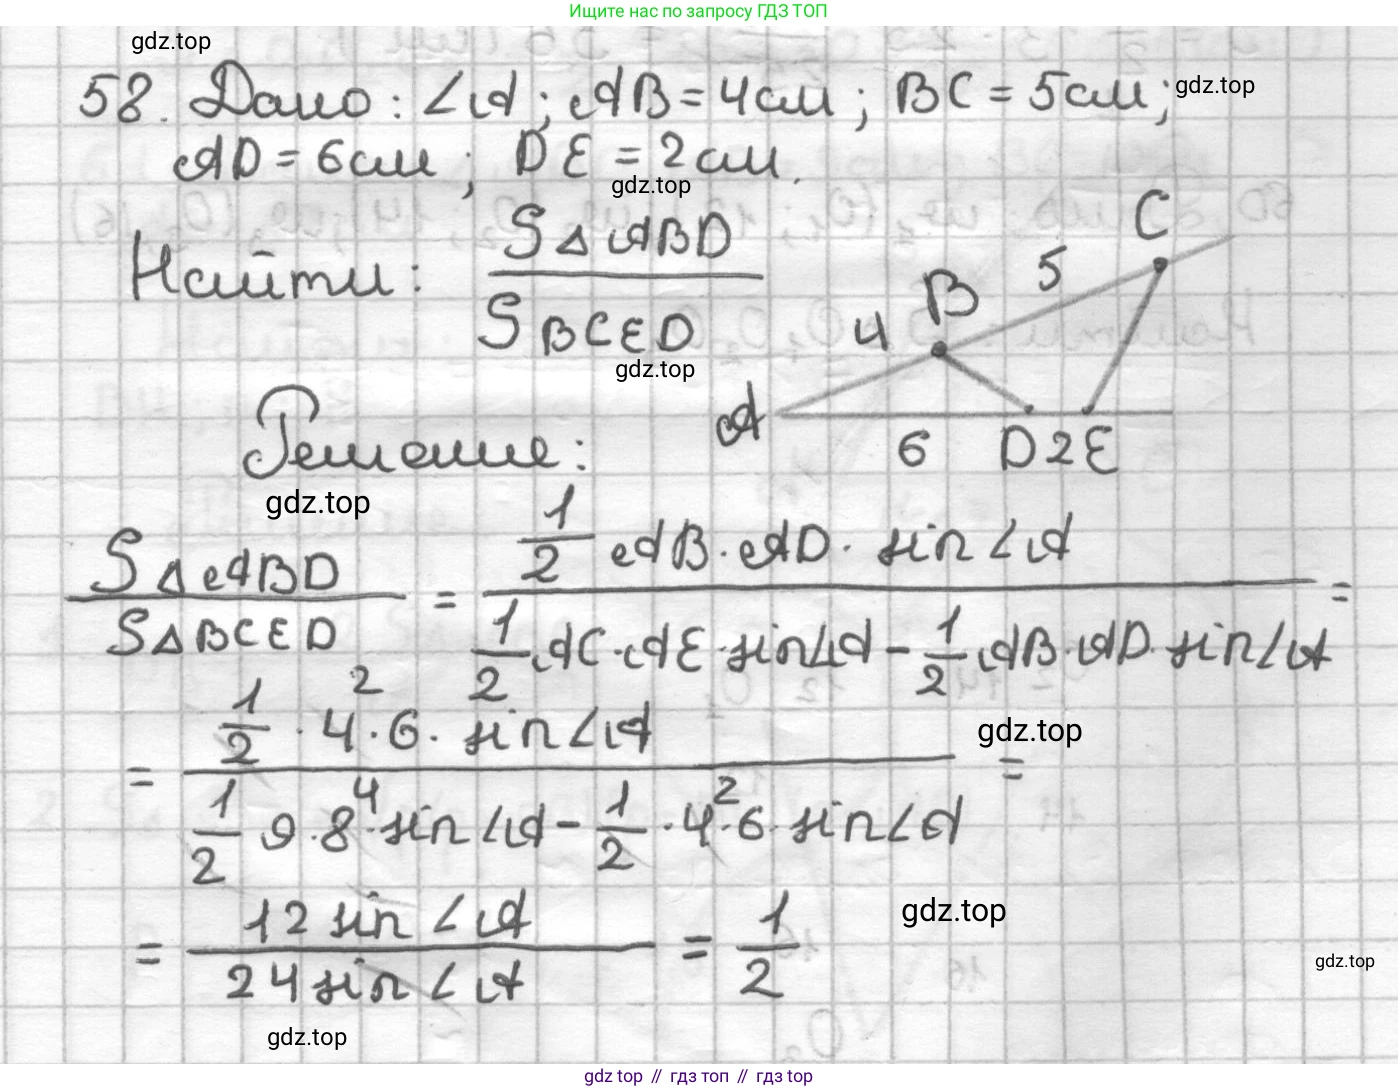 Ищите нас по запросу ГДЗ ТОП
gdz.top
58. Дано: ∠A; AB = 4см; BC = 5см;
gdz.top
AD = 6см; DE = 2см.
gdz.top
Найти: S△ABD / SBCED
gdz.top
C
5
B
4
A
6 D 2 E
Решение:
gdz.top
S△ABD / S△BCED = 1/2 AB · AD · sin∠A / 1/2 AC · AE · sin∠A − 1/2 AB · AD · sin∠A =
= 1/2 · 4² · 6 · sin∠A / 1/2 9 · 8⁴ · sin∠A − 1/2 · 4² · 6 · sin∠A =
gdz.top
= 12 sin∠A / 24 sin∠A = 1/2
gdz.top
gdz.top
gdz.top
gdz top // гдз топ // gdz top